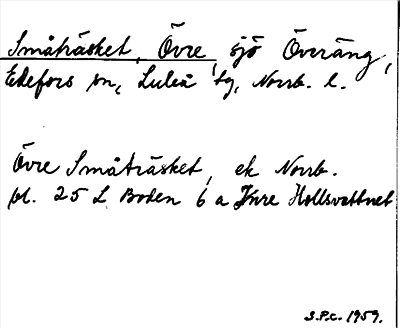 Småträsket, Övre, sjö Överäng,
Edefors sn, Luleå tg, Norrb. l.
Övre Småträsket, ek Norrb.
bl. 25 L Boden 6 a Yvre Hollsvattnet
S.P.C. 1959.